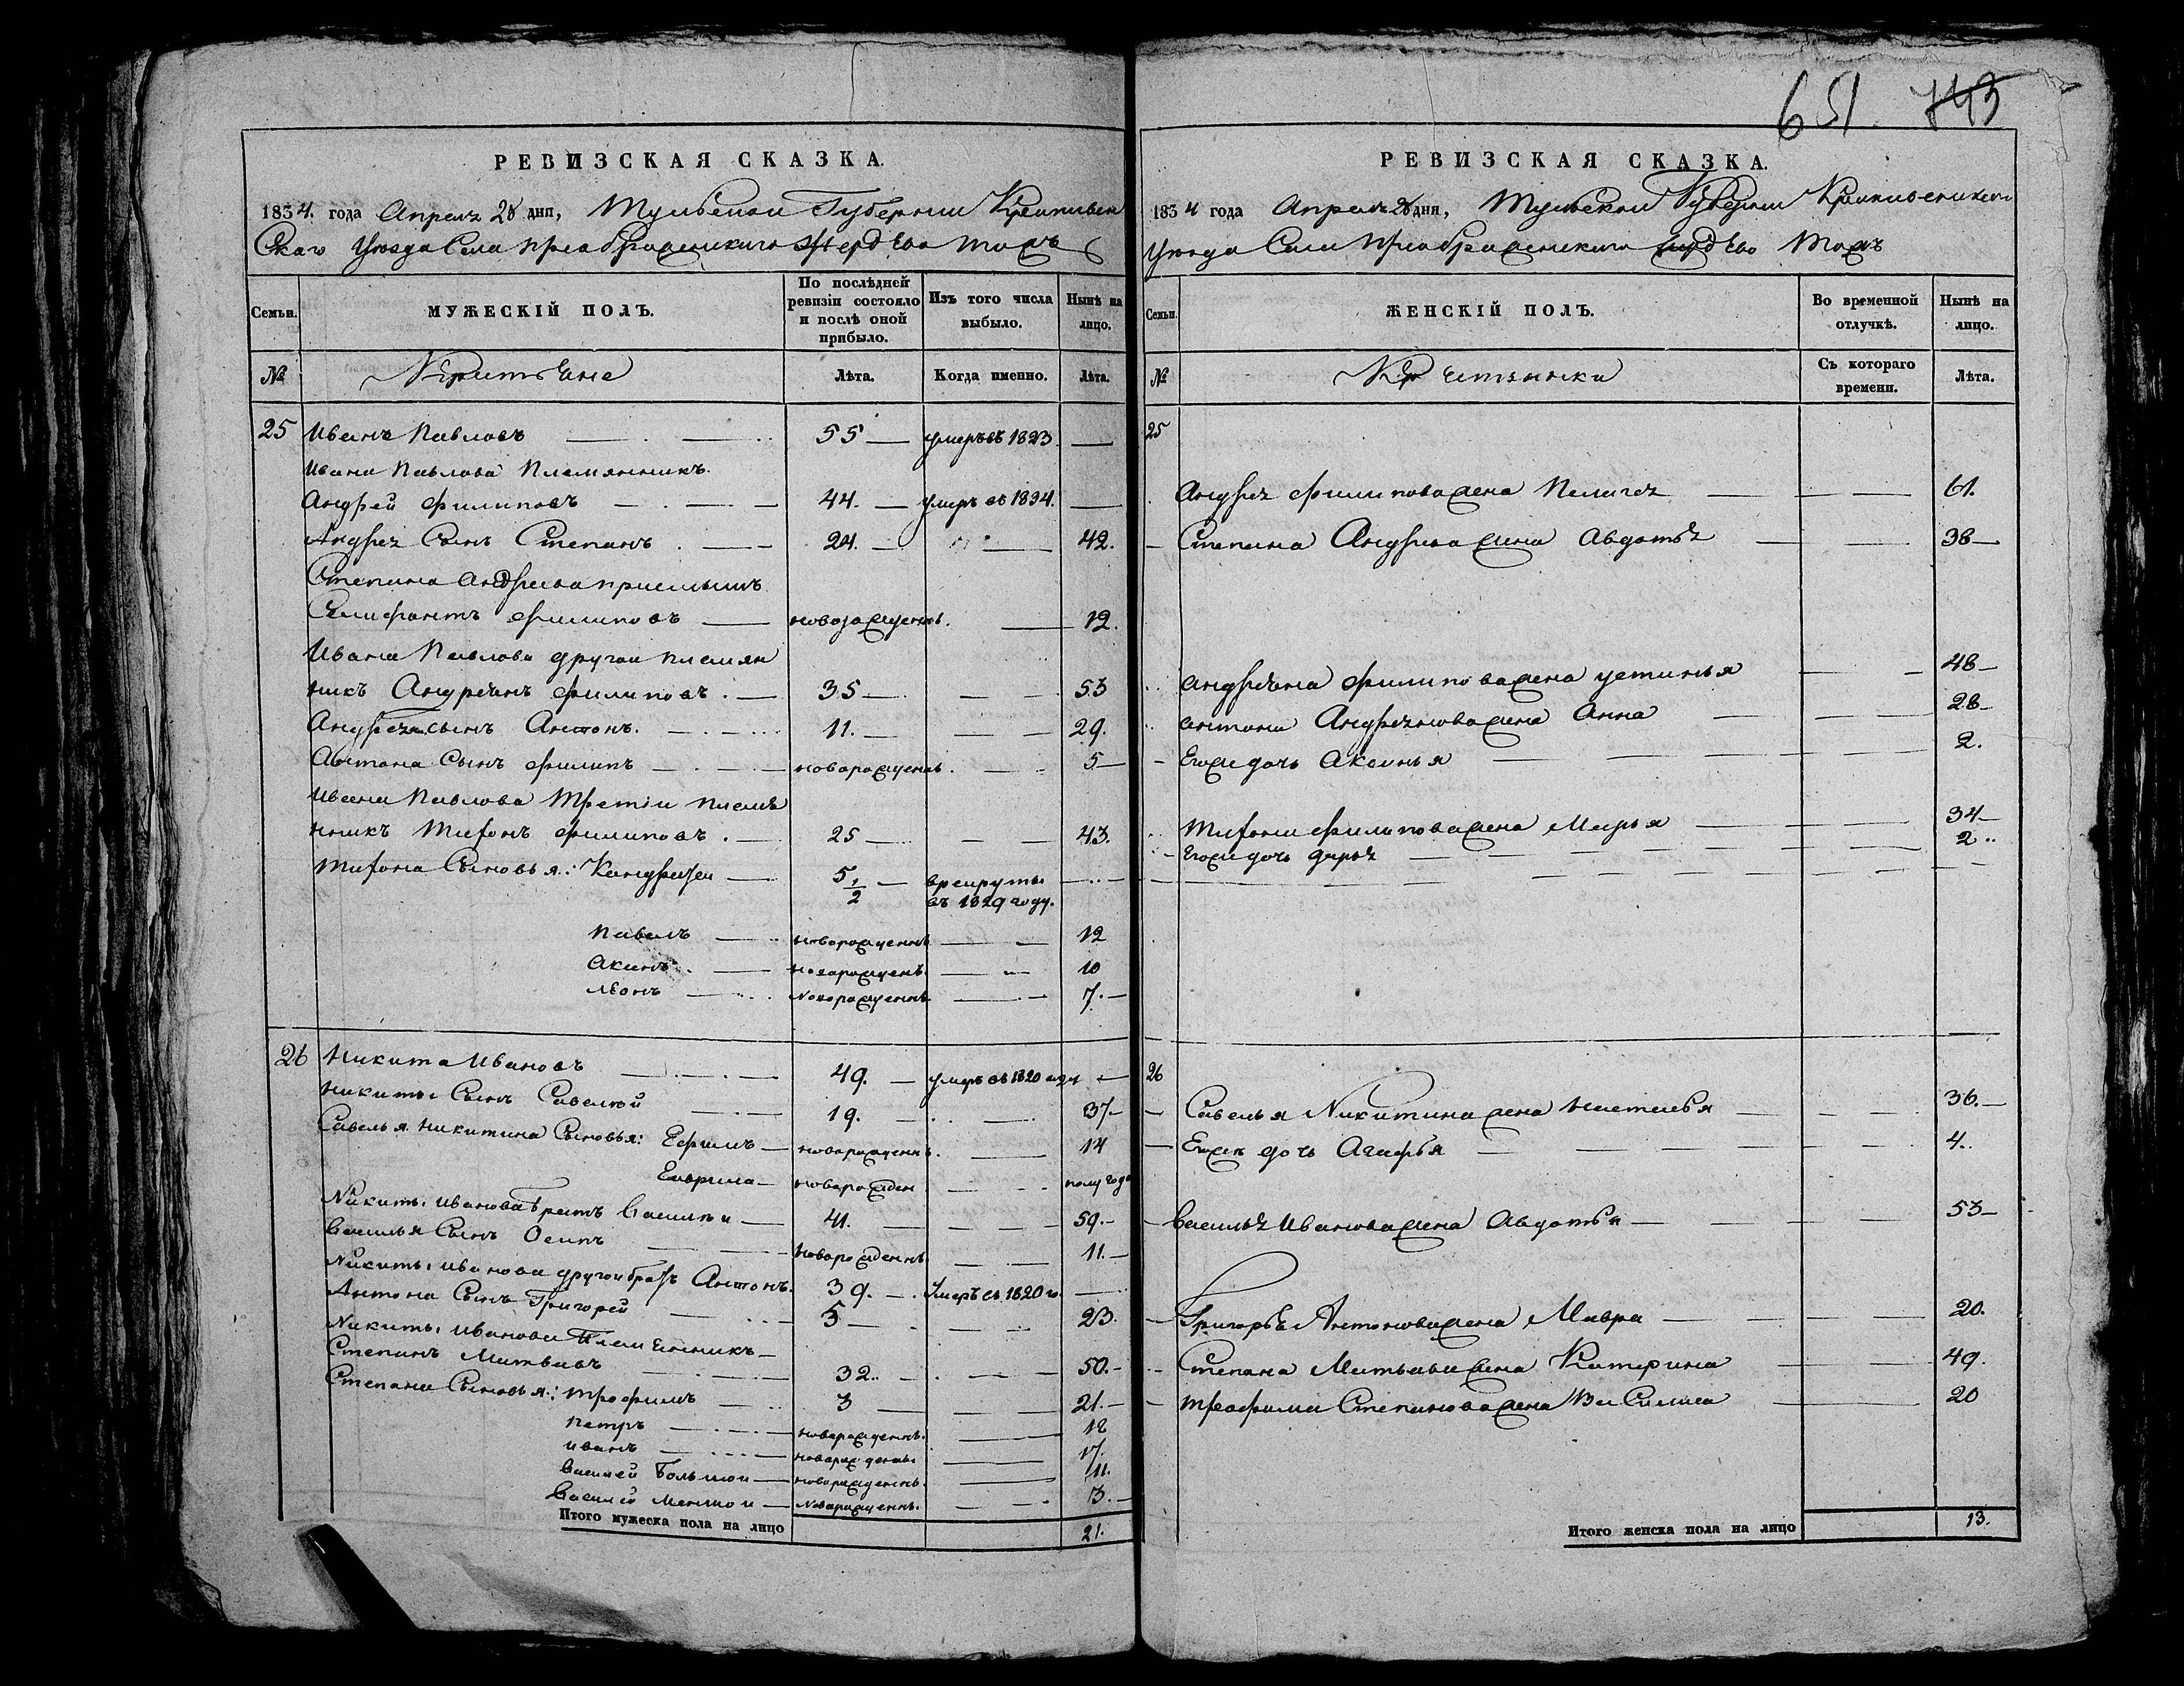 651. 743
РЕВИЗСКАЯ СКАЗКА.
1834. года Апреля 28 дня, Тульской Губернии Крапивен
Скаго Уезда Села преображенскаго Сердево тожъ
Семьи.
МУЖЕСКІЙ ПОЛЪ.
По послѣдней ревизіи состояло и послѣ оной прибыло.
Изъ того числа выбыло.
Нынѣ на лицо.
№
Лѣта.
Когда именно.
Лѣта.
25 Иванъ Павловъ 55 умеръ въ 1823.
Ивана Павлова Племянникъ.
Андрей филиповъ 44. умеръ въ 1834.
Андрея Сынъ Степанъ 24. 42.
Степана Андреева приемышъ
Селифантъ филиповъ 12.
Ивана Павлова другои племян
никъ Андреянъ филиповъ. 35 53
Андреянъ сынъ Антонъ. 11. 29.
Антона Сынъ филипъ новорожденъ. 5
Ивана Павлова Третiи племя
нникъ Тифонъ филиповъ. 25 43.
Тифона Сыновья: Кандратеи 5 1/2 врекруты
въ 1829 году.
Павелъ новорожденнъ 12
Акимъ новорожденъ. 10
Лвонъ новорожденнъ. 7.
26 Никита Ивановъ 49. умеръ въ 1820 году
Никиты Сынъ Савелей 19. 37
Савелья Никитина Сыновья: Ефимъ новорожденнъ. 14
Гаврила новорожден полу года
Никиты Иванова братъ Василеи 41. 59.
Василья Сынъ Осипъ новорожденнъ 11.
Никиты Иванова другои братъ Антонъ. 39. Умеръ въ 1820 го.
Антона Сынъ Григорей 5 23.
Никиты Иванова Племенникъ
Степанъ Матвевъ 32. 50.
Степана Сыновья: Трофимъ 3 21.
Петръ новорожденнъ. 18
Иванъ новорожденъ 17.
Василей Большои новорожденнъ. 11.
Василей Меншои новорожденнъ. 3.
Итого мужеска пола на лицо 21.
РЕВИЗСКАЯ СКАЗКА.
1834 года Апреля 28 дня, Тульской Губернии Крапивенскаго
Уезда Села Преображенскаго Сердево Тожъ
Семьи.
ЖЕНСКІЙ ПОЛЪ.
Во временной отлучкѣ.
Нынѣ на лицо.
№
Крестьянки
Съ котораго времени.
Лѣта.
25
Андрея филипова жена Пелагея 61.
Степана Андреева жина Авдотья 38
Андреяна филипова жена устинья 48
Антона Андреянова жена Анна 28
Егоже дочь Аксинья 2.
Тифона филипова жена Марья 34
Егоже дочь дарья 2.
26
Савелья Никитина жена Наталья 36.
Егоже дочь Агафья 4.
Василья Иванова жена Авдотья 53
Григорья Антонова жена Мавра 20.
Степана Матвева жена Катерина 49.
Трофима Степанова жена Василиса 20
Итого женска пола на лицо 13.